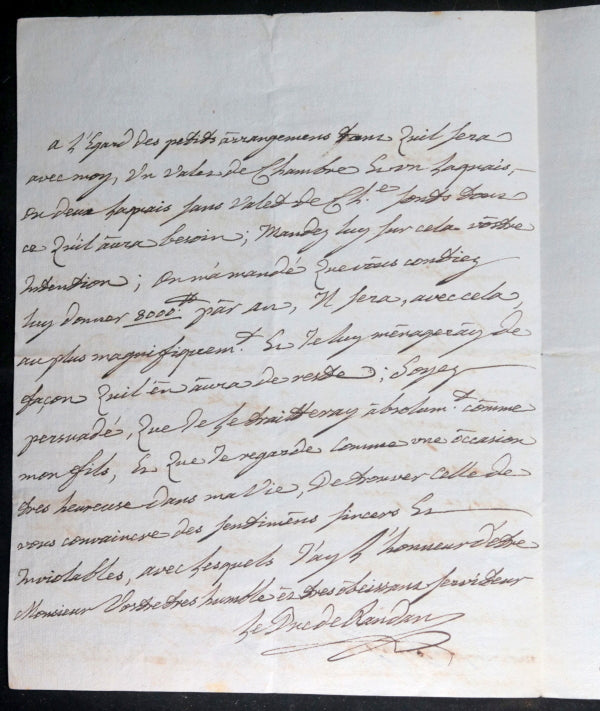 a L'Egard des petits arrangemens tant Quil sera
avec moy, Un valet de Chambre Et un Laquais,
ou deux Laquais sans valet de Ch.e sont tout
ce Quil aura besoin; Mandez luy sur cela vostre
Intention; on m'a mandé Que vous comtiez
luy donner 8000.tt par an, Il sera, avec cela,
au plus magnifiquem.t Et Je luy menageray de
façon Quil en aura de reste; Soyez
persuadé, Que Je Le traitteray absolum.t comme
mon fils, Et Que Je regarde comme une occasion
tres heureuse dans ma vie, De trouver celle de
vous convaincre des sentimens sincers Et
Inviolables, avec Lesquels J'ay L'honneur d'etre
Monsieur Vostre tres humble et tres obeissant serviteur
Le Duc de Randan